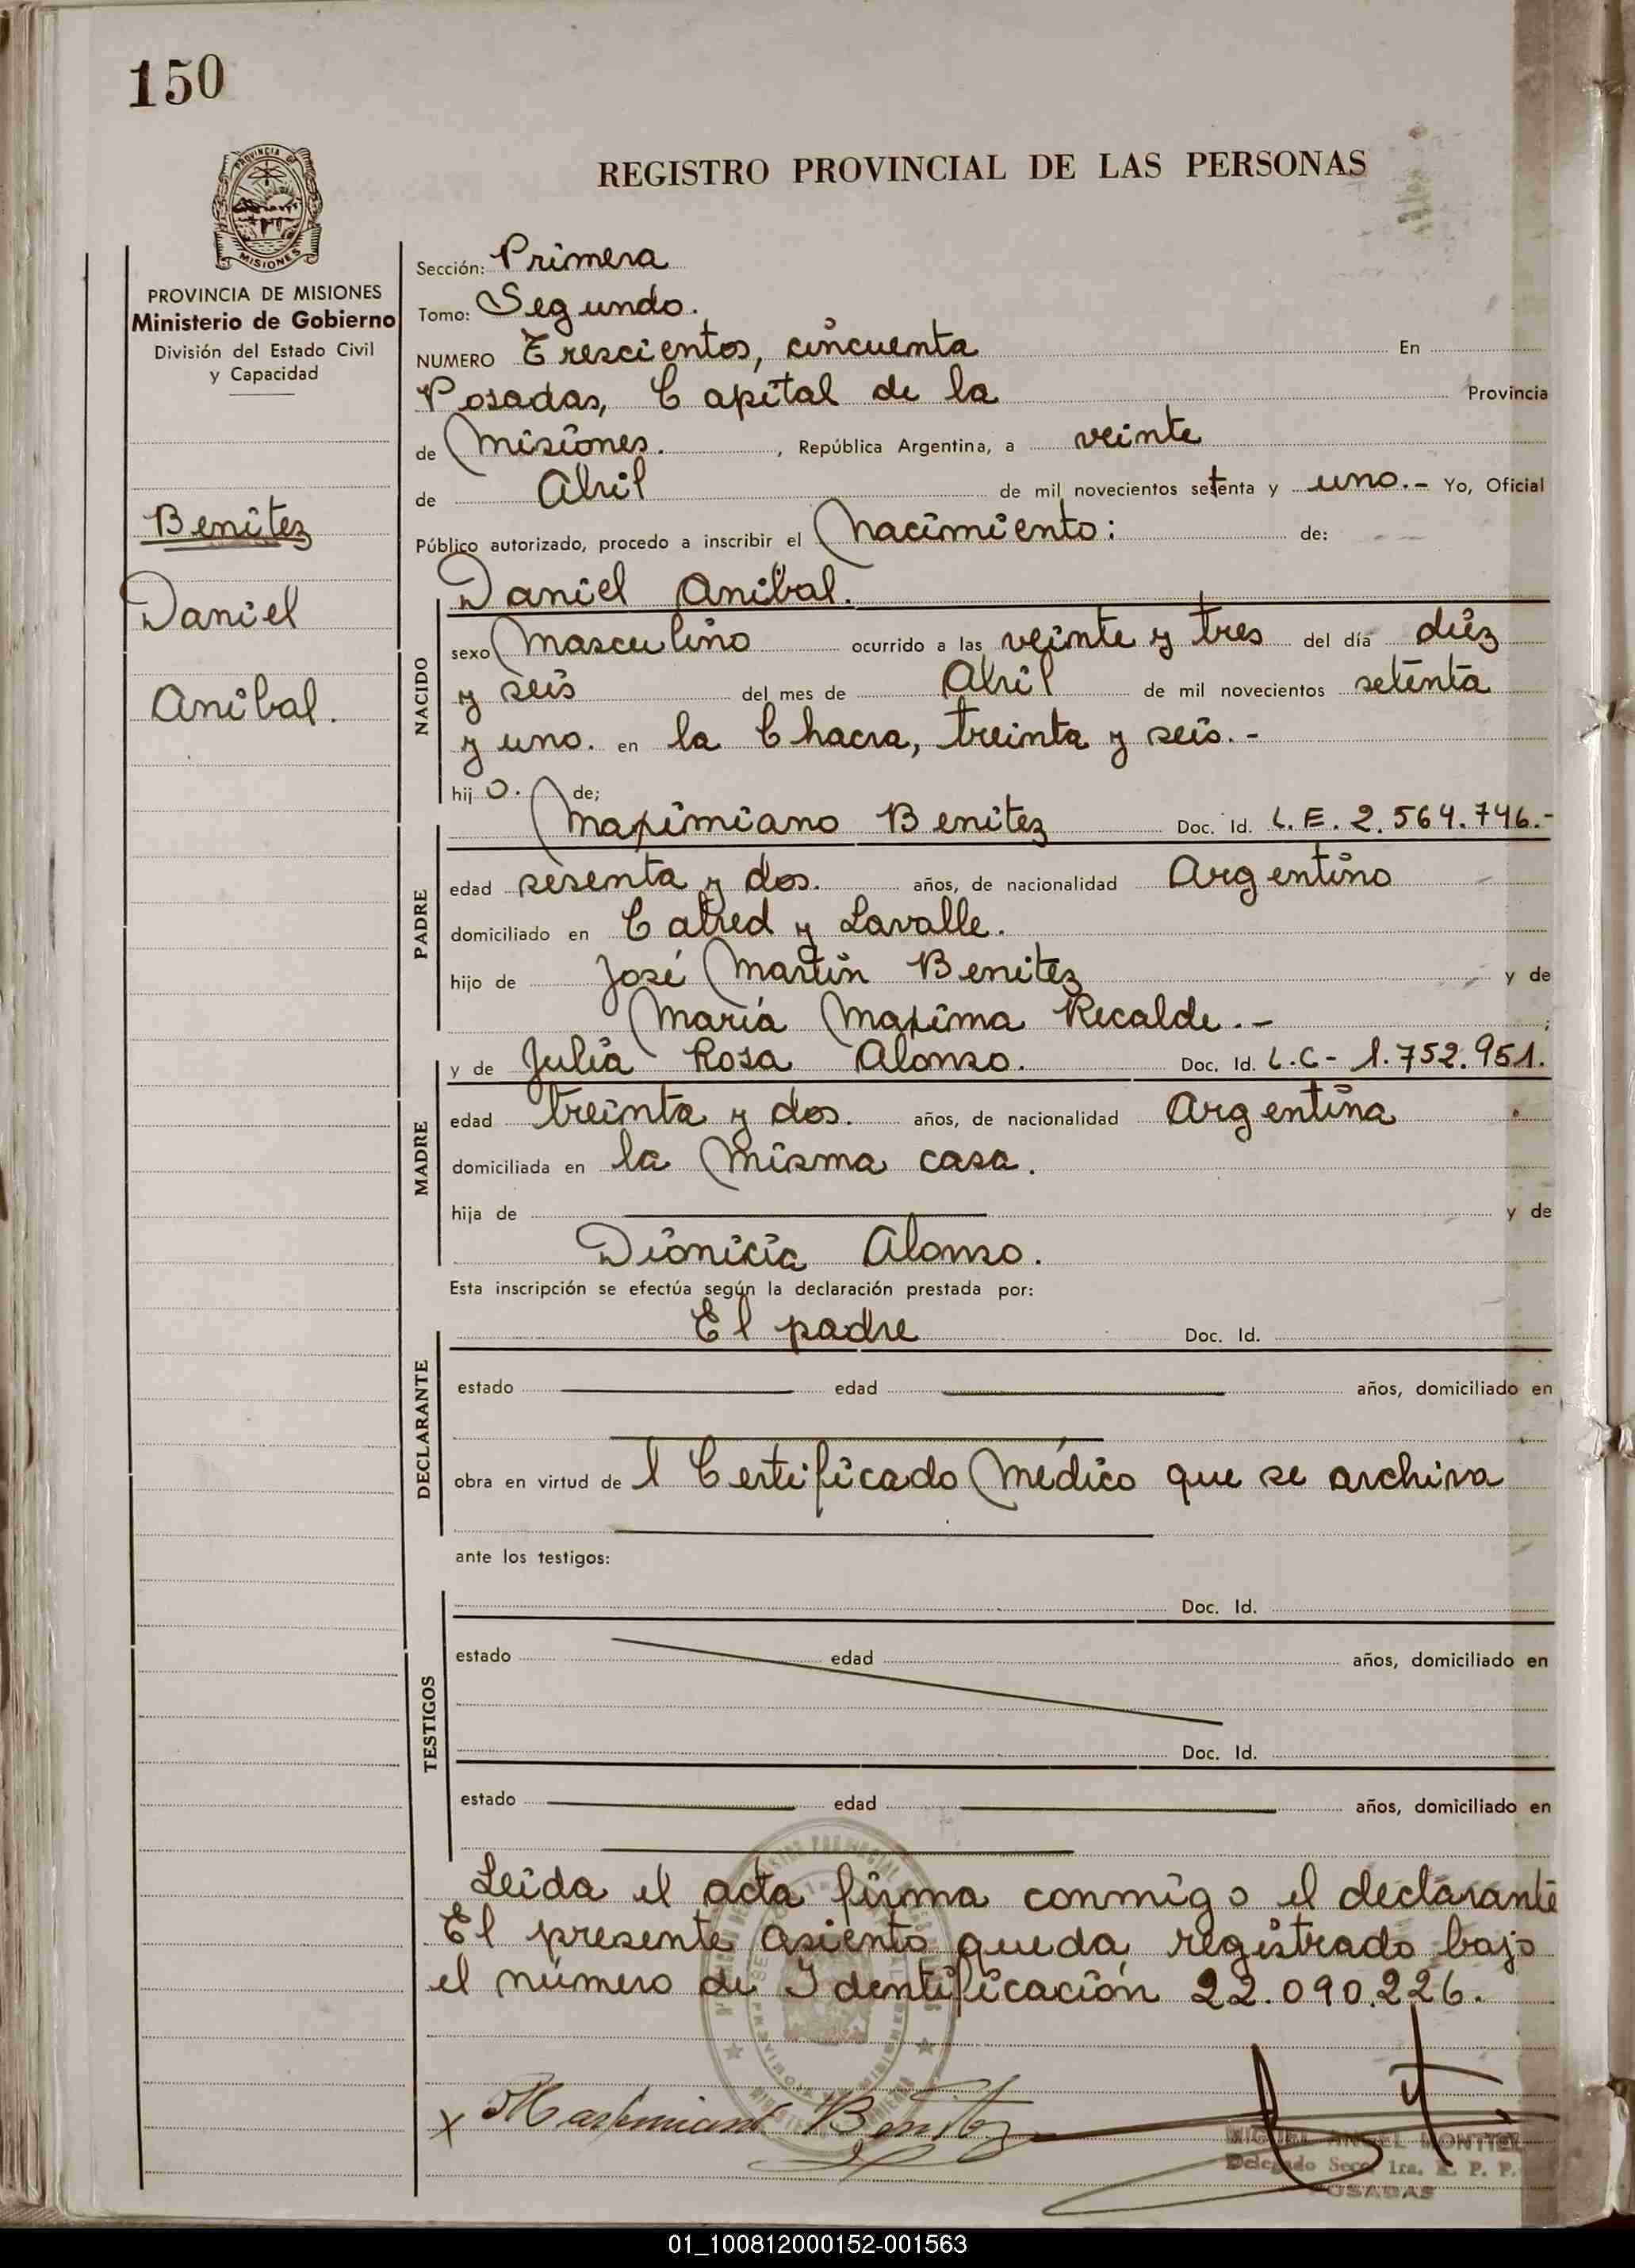 150
PROVINCIA DE MISIONES
REGISTRO PROVINCIAL DE LAS PERSONAS
PROVINCIA DE MISIONES
Ministerio de Gobierno
División del Estado Civil
y Capacidad
Benitez
Daniel
Anibal.
Sección: Primera
Tomo: Segundo.
NUMERO Trescientos, cincuenta En
Posadas, Capital de la Provincia
de Misiones. , República Argentina, a veinte
de Abril de mil novecientos setenta y uno.- Yo, Oficial
Público autorizado, procedo a inscribir el Nacimiento: de:
Daniel Anibal.
NACIDO
sexo Masculino ocurrido a las veinte y tres del día diéz
y seis del mes de Abril de mil novecientos setenta
y uno. en la Chacra, treinta y seis.-
hij o. de;
Maximiano Benitez Doc. Id. L.E. 2.564.746.-
PADRE
edad sesenta y dos. años, de nacionalidad Argentino
domiciliado en Cabred y Lavalle.
hijo de José Martin Benitez y de
María Maxima Recalde.- ;
y de Julia Rosa Alonso. Doc. Id. L.C- 1.752.951.
MADRE
edad treinta y dos. años, de nacionalidad Argentina
domiciliada en la misma casa.
hija de y de
Dionicia Alonso.
Esta inscripción se efectúa según la declaración prestada por:
El padre Doc. Id.
DECLARANTE
estado edad años, domiciliado en
obra en virtud de l Certificado Médico que se archiva
ante los testigos:
Doc. Id.
TESTIGOS
estado edad años, domiciliado en
Doc. Id.
estado edad años, domiciliado en
Leida el acta firma conmigo el declarante
El presente asiento queda registrado bajo
el número de Identificación 22.090.226.
x Maximiano Benitez
MIGUEL ANGEL MONTIEL
Delegado Secc. 1ra. R. P. P.
POSADAS
01_100812000152-001563